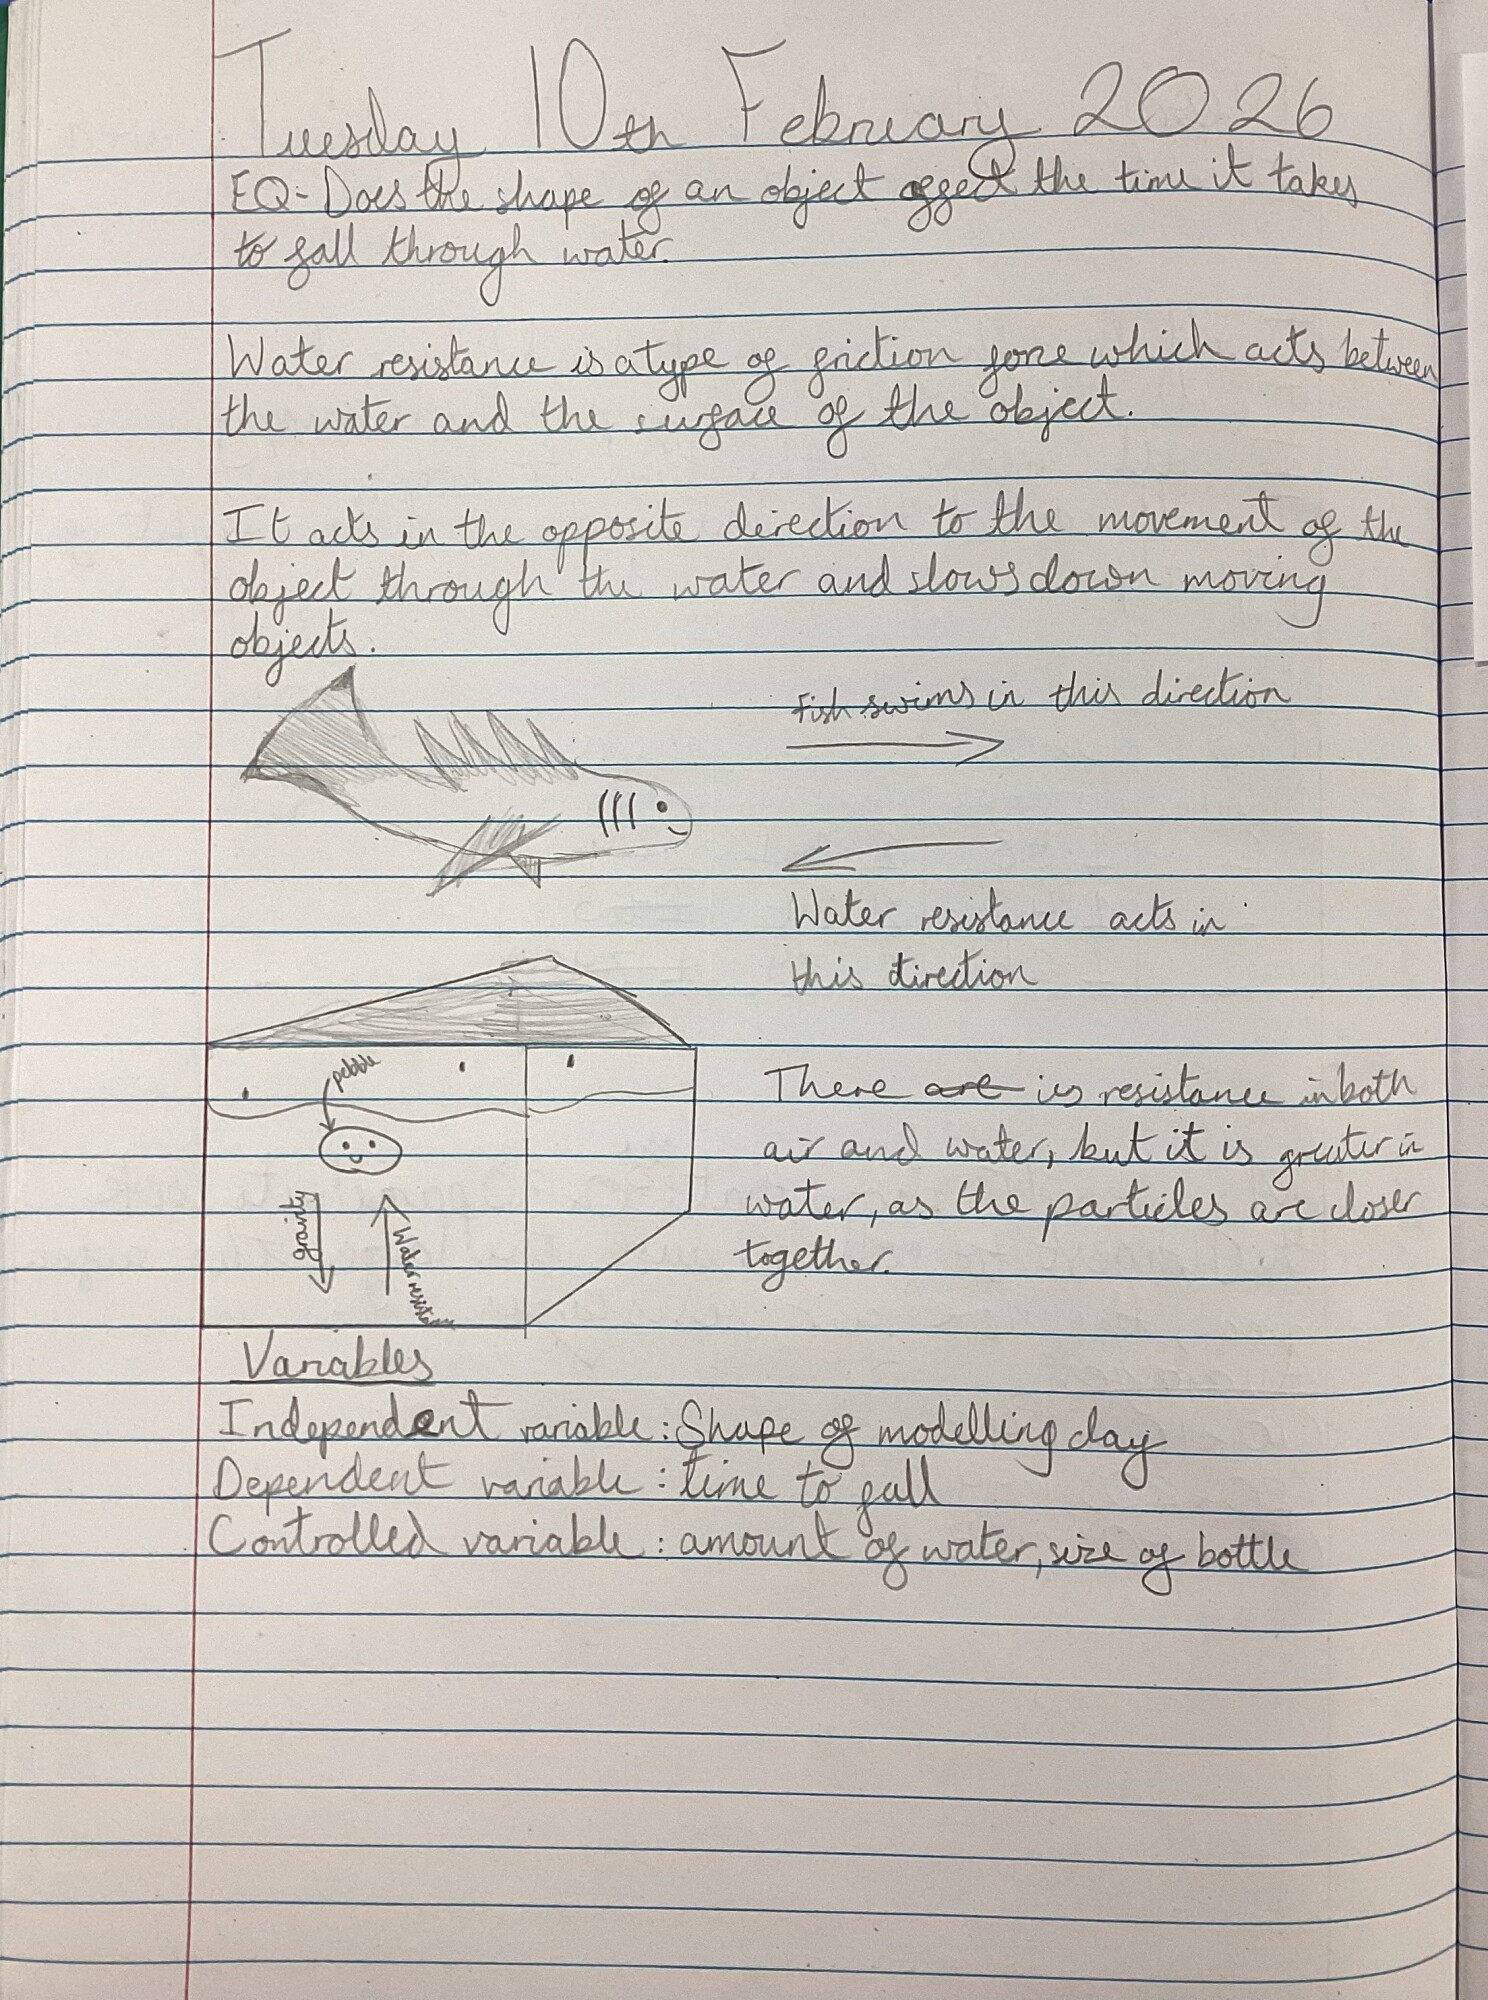 Tuesday 10th February 2026
EQ- Does the shape of an object affect the time it takes
to fall through water.
Water resistance is a type of friction force which acts between
the water and the surface of the object.
It acts in the opposite direction to the movement of the
object through the water and slows down moving
objects.
Fish swims in this direction
Water resistance acts in
this direction
pebble
gravity
Water resistance
There are is resistance in both
air and water, but it is greater in
water, as the particles are closer
together.
Variables
Independent variable: Shape of modelling clay
Dependent variable: time to fall
Controlled variable: amount of water, size of bottle